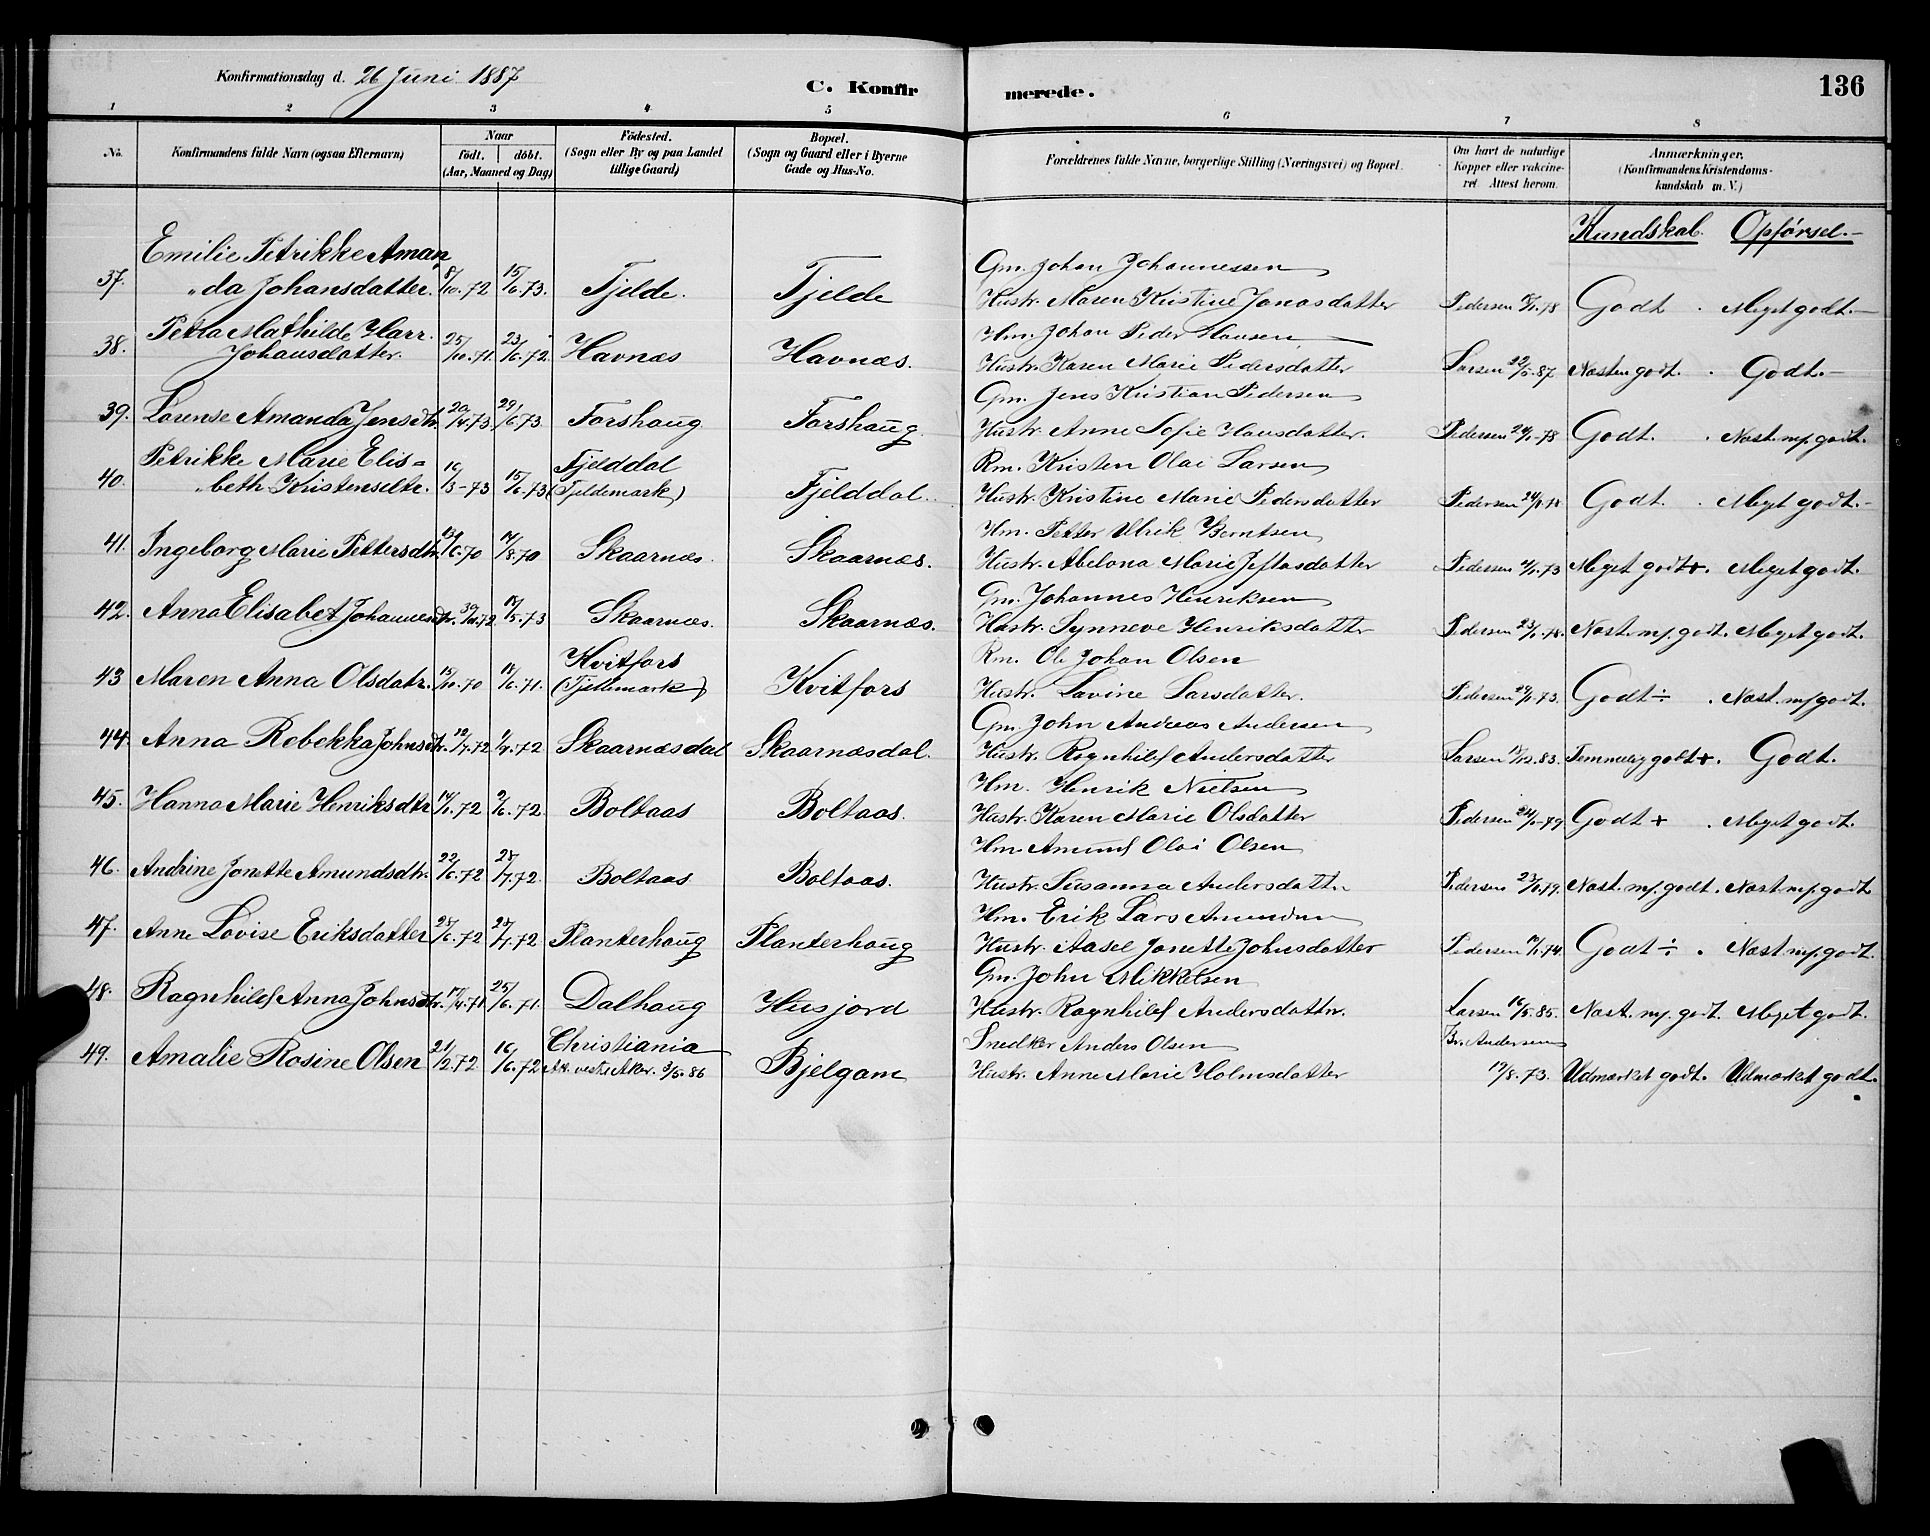 Konfirmationsdag d. 26 Juni 1887
C. Konfirmerede.
136
1 2 3 4 5 6 7 8
No.
Konfirmandens fulde Navn (ogsaa Efternavn)
Naar
födt. döbt.
(Aar, Maaned og Dag)
Födested.
(Sogn eller By og paa Landet
tillige Gaard)
Bopæl.
(Sogn og Gaard eller i Byerne
Gade og Hus-No.
Forældrenes fulde Navne, borgerlige Stilling (Næringsvei) og Bopæl.
Om havt de naturlige
Kopper eller vakcine-
ret Attest herom.
Anmærkninger.
(Konfirmandens Kristendoms-
kundskab m. V.)
Kundskab. Opførsel.-
Emilie Petrikke Aman
Gm. Johan Johannessen
37. "da Johansdatter. 8/10.72 15/6.73. Tjelde. Tjelde Hustr. Maren Kristine Jonasdatter Pedersen Godt . Meget godt.-
Petra Mathilde Harr. Hm. Johan Peder Hansen
38. Johansdatter. 25/10.71. 23/6.72. Havnæs Havnæs. Hustr. Karen Marie Pedersdatter Larsen 22/5.87 Næsten godt. . Godt.-
Gm. Jens Kristian Pedersen
39. Lorense Amanda Jensdtr. 20/4.73. 29/6.73. Forshaug Forshaug. Hustr. Anne Sofie Hansdatter. Pedersen 24/1-78 Godt. . Næst. m/. godt.
Petrikke Marie Elis= Fjelddal Rm. Kristen Olai Larsen
40. "beth Kristensdtr. 16/3-73 15/6.73 (Tjeldemark) Fjelddal. Hustr. Kristine Marie Pedersdatter Pedersen Godt. . Meget godt.-
Hm. Petter Ulrik Berntsen
41. Ingeborg Marie Pettersdtr. /6.70 14/8.70 Skaarnæs. Skaarnæs. Hustr. Abelona Marie Jeftasdatter Pedersen Meget godt+. Meget godt.
Gm. Johannes Henriksen
42. Anna Elisabet Johannesdtr. 72 /5.73 Skaarnæs. Skaarnæs. Hustr. Synneve Henriksdatter Pedersen Næst. m/. godt. Meget godt.
Kvitfors Rm. Ole Johan Olsen
43 Maren Anna Olsdatr. 15/10.70 18/6.71. (Tjeldemark) Kvitfors Hustr. Lavine Larsdatter. Pedersen Godt ÷ . Næst. m/ godt.
Gm. John Andreas Andersen
44. Anna Rebekka Johnsdtr. 12/4.72 72 Skaarnæsdal Skaarnæsdal. Hustr. Ragnhild Andersdatter Larsen 18/12.83. Temmelig godt+. Godt.
Hm. Henrik Nielsen
45. Hanna Marie Henriksdtr 14/1.72 9/6.72. Boltaas Boltaas. Hustr. Karen Marie Olsdatter Pedersen 24/1-79. Godt + . Meget godt.
Hm. Amund Olai Olsen
46. Andrine Jonette Amundsdtr. 22/6.72 28/7.72. Boltaas Boltaas. Hustr. Susanna Andersdatter Pedersen 23/1.79. Næst. m/. godt. Næst. m/. godt
Hm. Erik Lars Amundsen
47. Anne Lovise Eriksdatter 28/6.72 28/7.72 Planterhaug Planterhaug Hustr. Aasel Jonette Johnsdatter Pedersen Godt ÷ . Næst. m/. godt.
Gm. John Mikkelsen
48. Ragnhild Anna Johnsdtr. 17/4.71 25/6.71. Dalhaug Husjord Hustr. Ragnhild Andersdattr. Larsen 16/5.85. Næst. m/. godt. Meget godt.
Christiania Snedker Anders Olsen Br. Andersen
49. Amalie Rosine Olsen 21/2.72. 16/6.72 Att. vestre Aker. 3/5.86 Bjelgam Hustr. Anne Marie Holmsdatter 19/8.73. Udmærket godt. Udmærket godt.